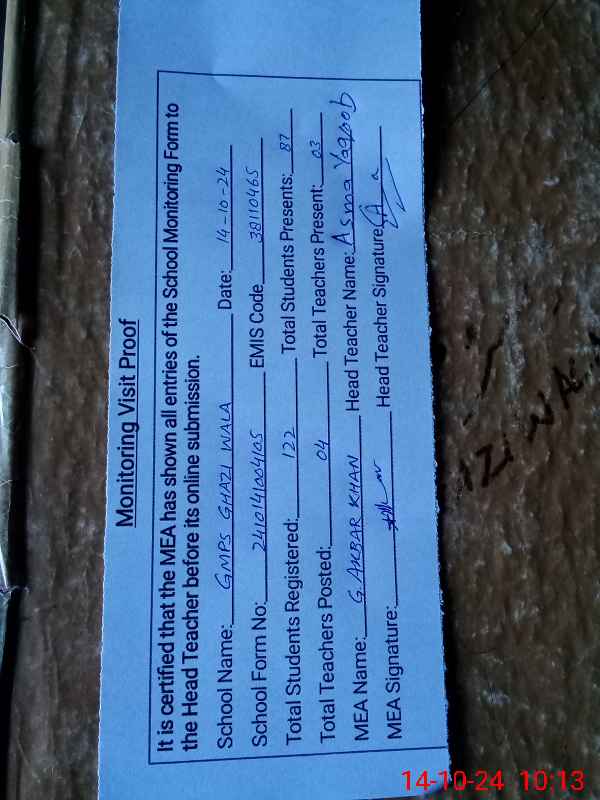 Monitoring Visit Proof
It is certified that the MEA has shown all entries of the School Monitoring Form to
the Head Teacher before its online submission.
School Name: GMPS GHAZI WALA Date: 14-10-24
School Form No: 2410141004105 EMIS Code 38110465
Total Students Registered: 122 Total Students Presents: 87
Total Teachers Posted: 04 Total Teachers Present: 03
MEA Name: G. AKBAR KHAN Head Teacher Name: Asma Yaqoob
MEA Signature: Head Teacher Signature
14-10-24 10:13